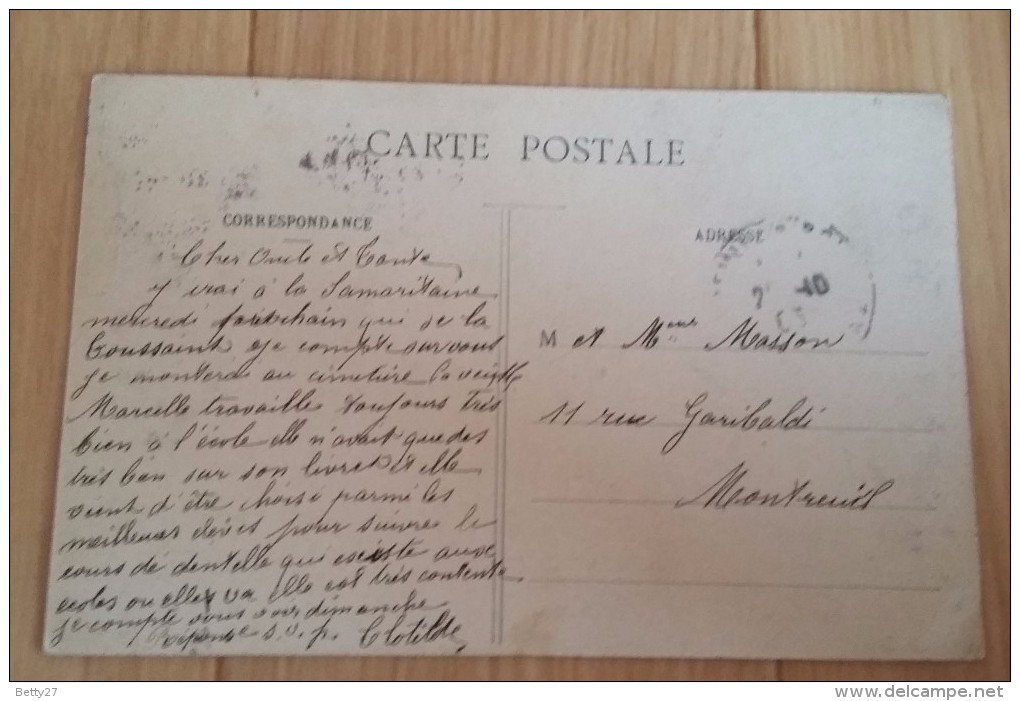 CARTE POSTALE
CORRESPONDANCE
ADRESSE
Cher Oncle et Tante
j irai à la Samaritaine
mercredi prochain qui se la
Toussaint je compte sur vous
je monterai au cimetière la veille
Marcelle travaille toujours très
bien à l'école elle n'avait que des
très bien sur son livret et elle
vient d'être choisi parmi les
meilleures élèves pour suivre le
cours de dentelle qui existe aux
écoles ou elles va elle est très contente
je compte vous voir dimanche
Réponse s.v.p. Clotilde
M et Mme Masson
11 rue Garibaldi
Montreuil
10
Betty27
www.delcampe.net